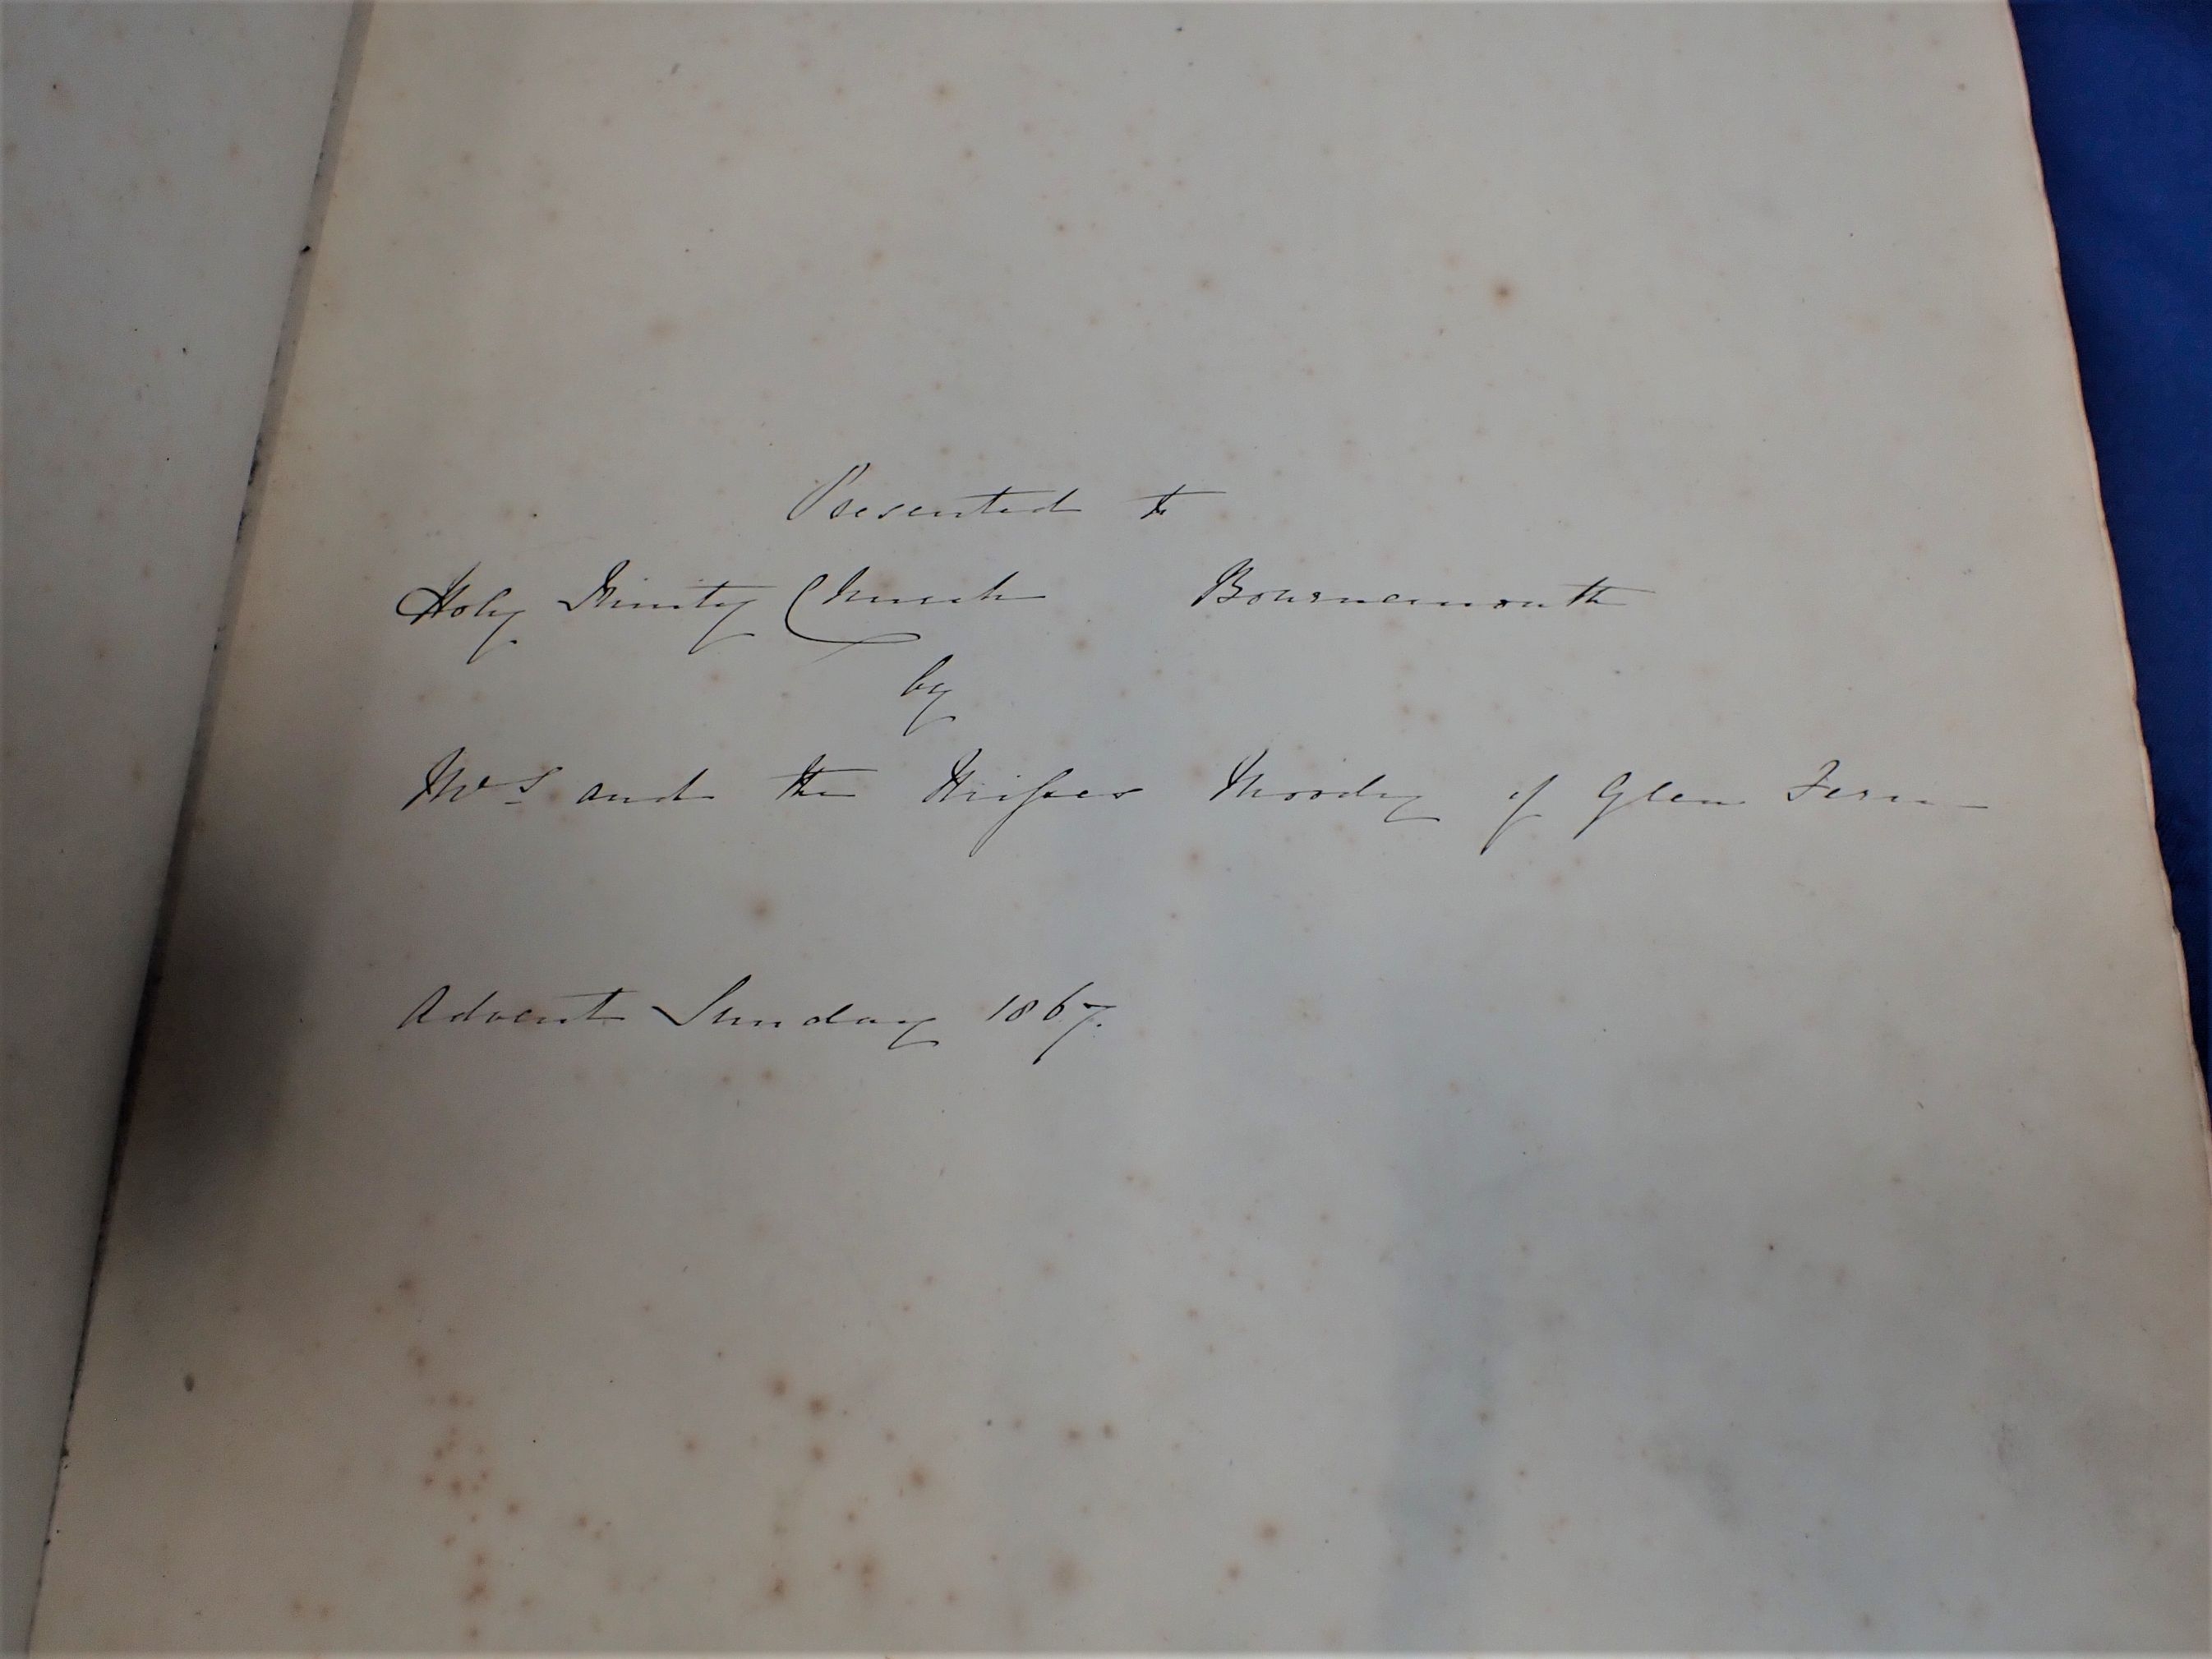 Presented to
Holy Trinity Church Bournemouth
by
Mrs and the Misses Moody of Glen Fern
Advent Sunday 1867.